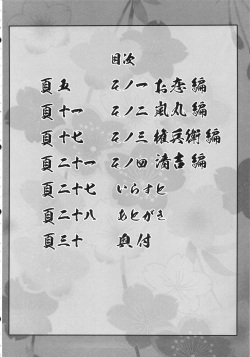 目次
頁五 その一 お恋編
頁十一 その二 嵐丸編
頁十七 その三 権兵衛編
頁二十一 その四 清吉編
頁二十七 いらすと
頁二十八 あとがき
頁三十 奥付